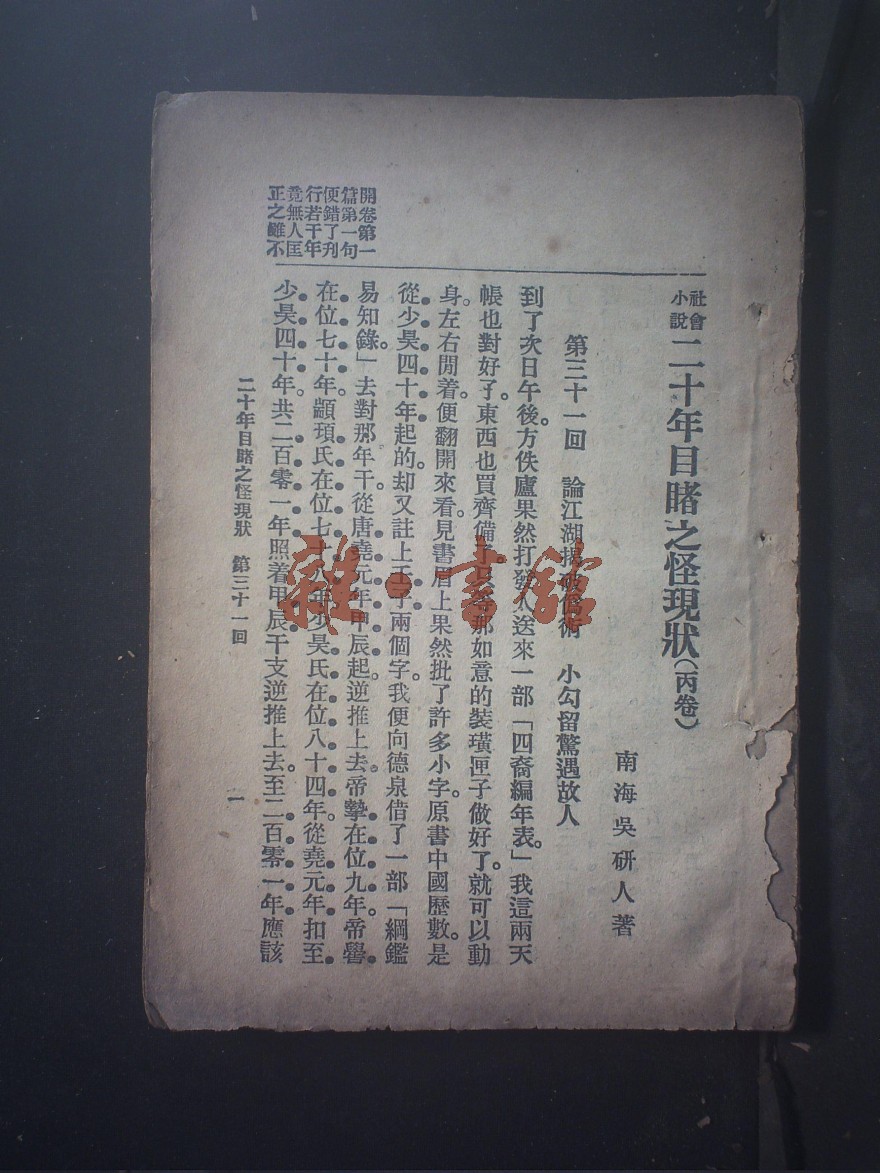 社會小說 二十年目睹之怪現狀(丙卷)
南海吳研人著
第三十一回 論江湖揭破僞術 小勾留驚遇故人
到了次日午後。方佚廬果然打發人送來一部「四裔編年表。」我這兩天
帳也對好了。東西也買齊備了。只等那如意的裝璜匣子做好了。就可以動
身。左右閒着。便翻開來看。見書眉上果然批了許多小字。原書中國歷數。是
從少昊四十年起的。却又註上壬子兩個字。我便向德泉借了一部「綱鑑
易知錄。」去對那年干。從唐堯元年甲辰起。逆推上去。帝摯在位九年。帝嚳
在位七十年。顓頊氏在位七十八年。少昊氏在位八十四年。從堯元年扣至
少昊四十年。共二百零一年。照着甲辰干支逆推上去。至二百零一年應該
開卷第一
篇第一句
便錯了刋
行若干年
竟無人匡
正之雖不
二十年目睹之怪現狀 第三十一回
一
雜·書館